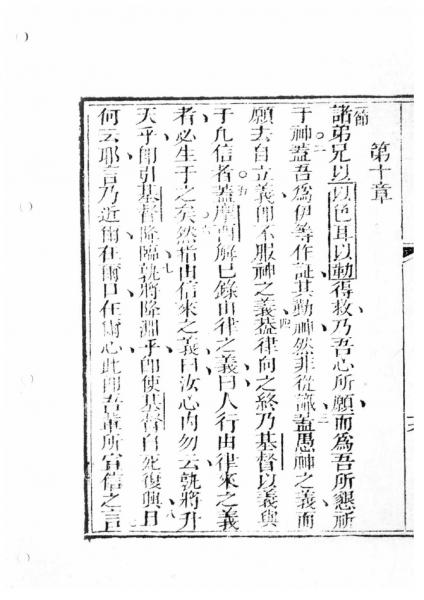 第十章
一節諸弟兄以以色耳以勒得救乃吾心所願而為吾所懇祈
于神二蓋吾為伊等作証其勤神然非從識三蓋愚神之義而
願去自立義即不服神之義四蓋律向之終乃基督以義與
于凡信者五蓋摩西解已錄由律之義曰人行由律來之義
者必生于之矣六然信由信來之義曰汝心內勿云孰將升
天乎即引基督降臨七孰將降淵乎即使基督自死復興八且
何云耶言乃近爾在爾口在爾心此即吾輩所宣信之言